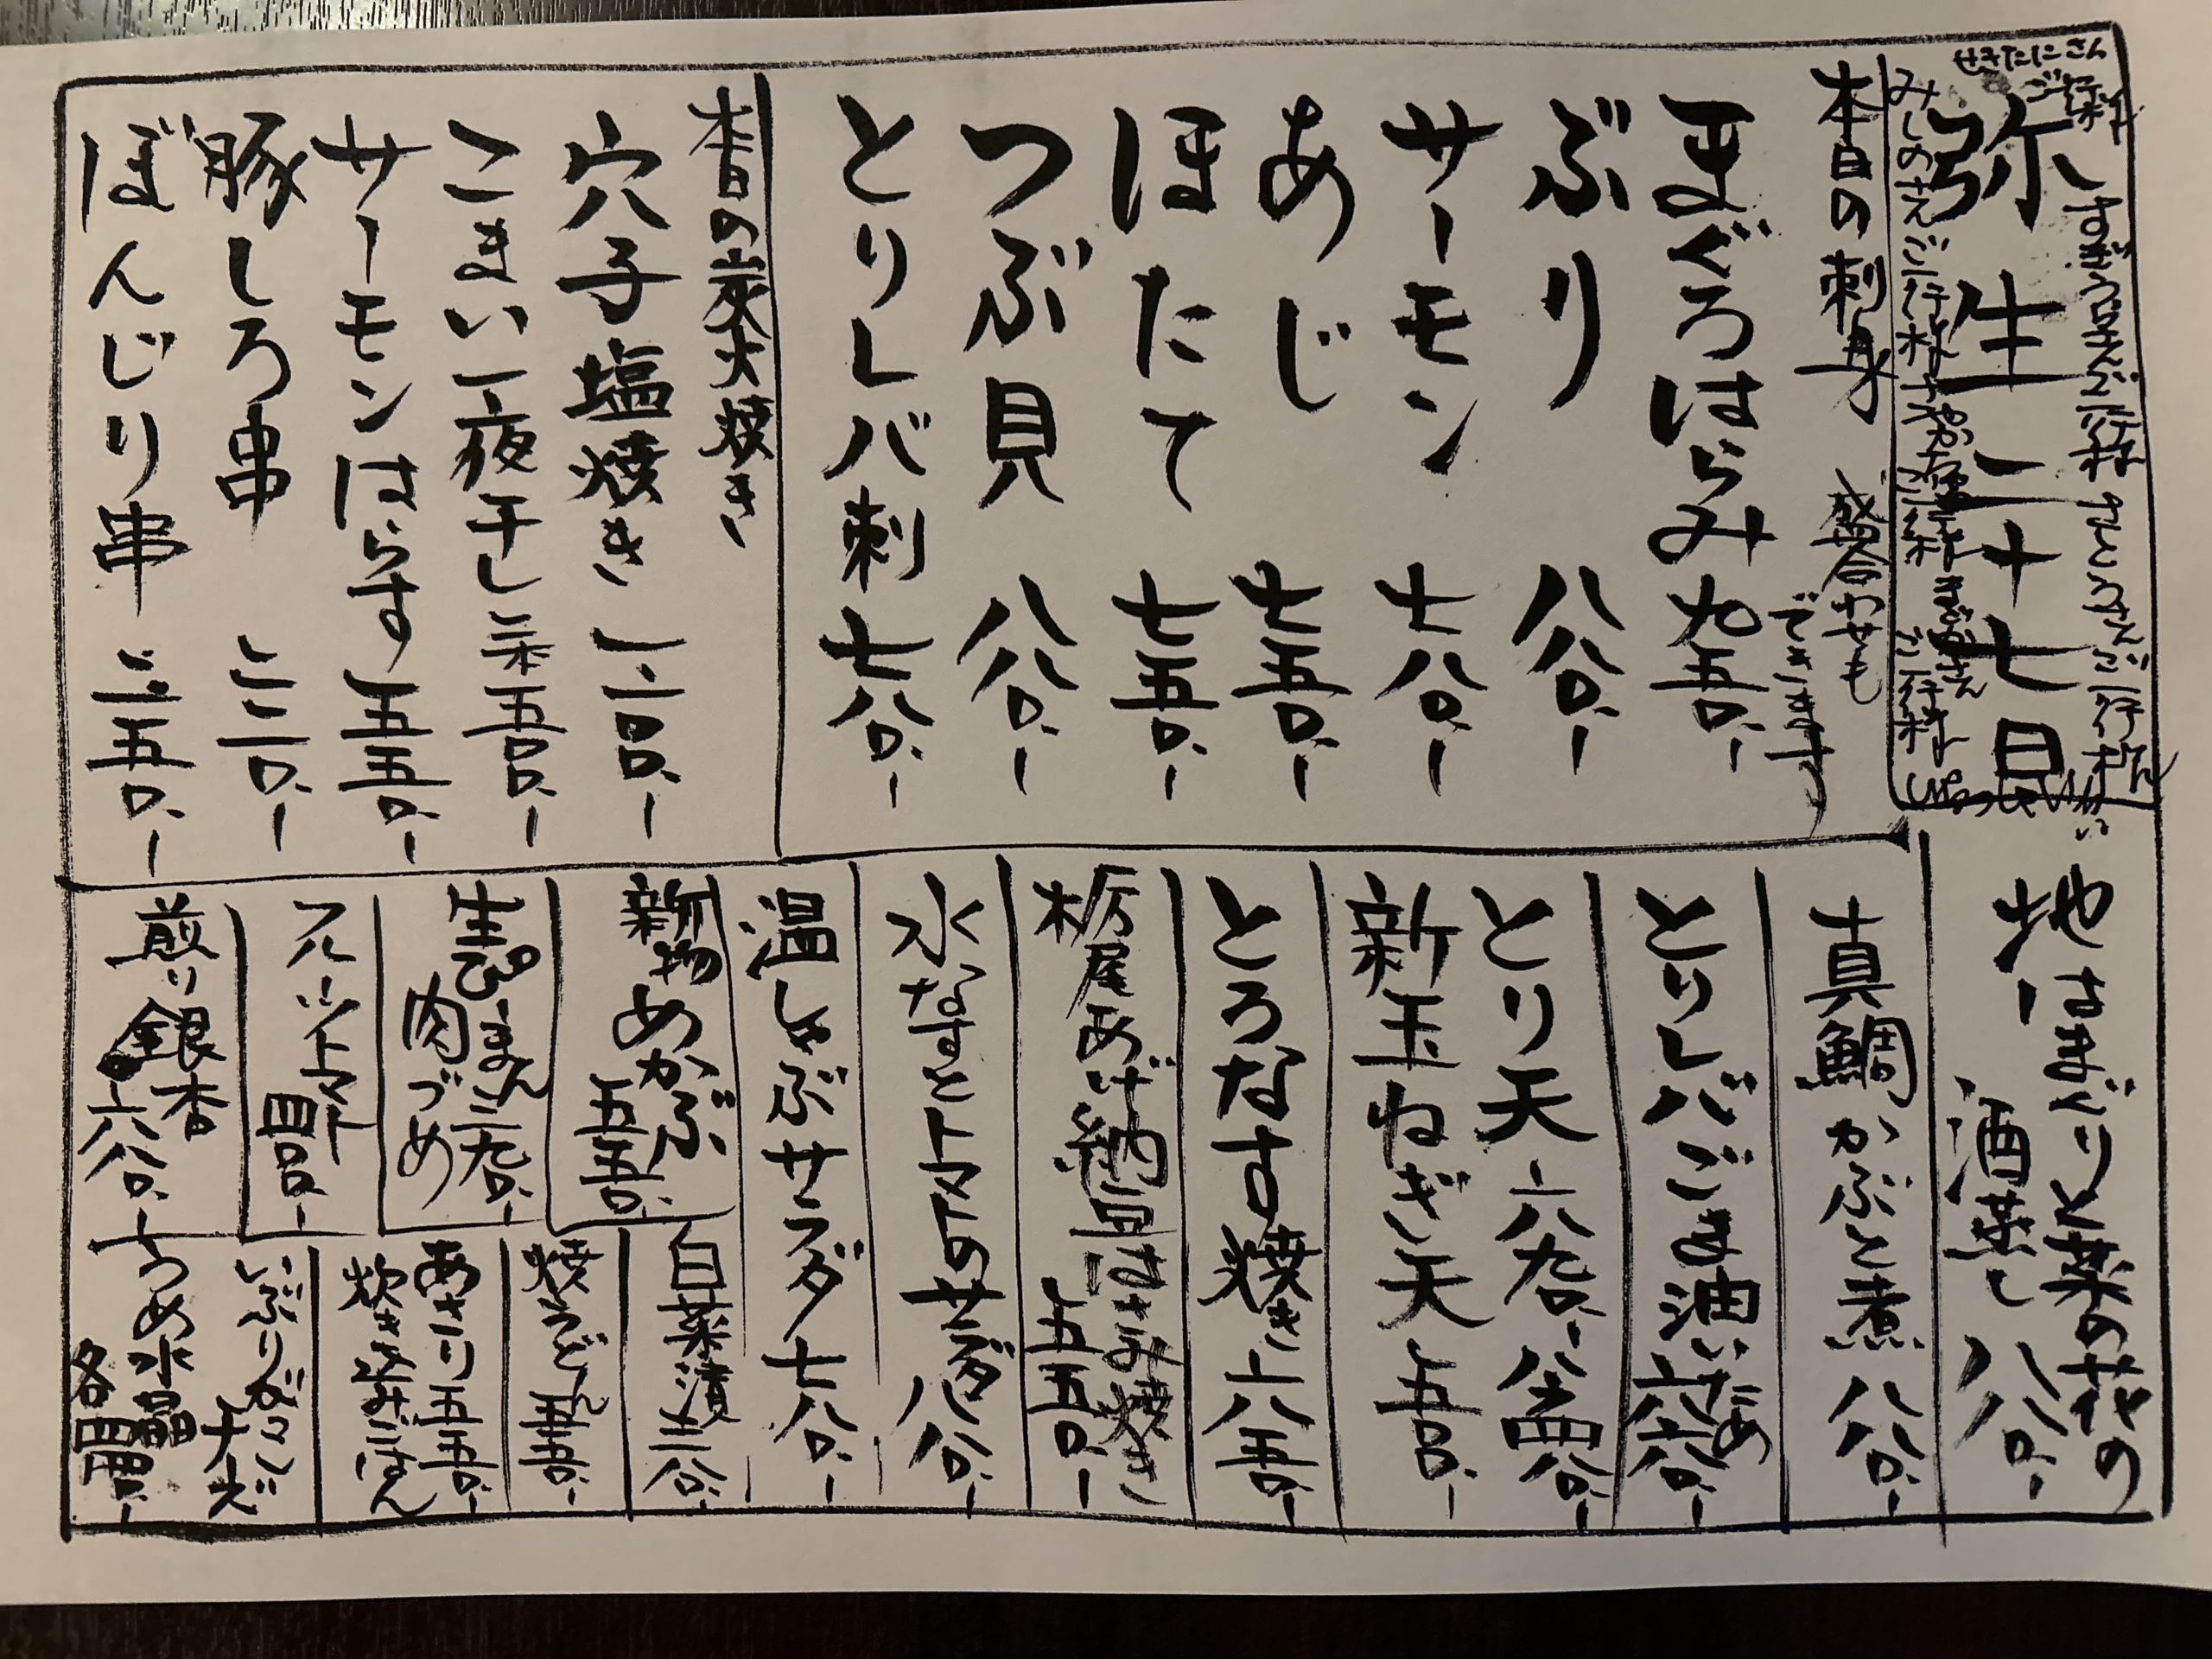 せきたにさん
ご一行様
すぎうらさんご一行様 さとうさんご一行様
弥生二十七日
みしのさんご一行様
ご一行様 いらっしゃいませ
本日の刺身 盛合わせも
できます
まぐろはらみ 九五〇、ー
ぶり 八八〇、ー
サーモン 七八〇、ー
あじ 七五〇、ー
ほたて 七五〇、ー
つぶ貝 八八〇、ー
とりレバ刺 七八〇、ー
本日の炭火焼き
穴子塩焼き 一、二〇〇、ー
こまい一夜干し 五〇〇、ー
サーモンはらす 五五〇、ー
豚しろ串 二二〇、ー
ぼんじり串 二五〇、ー
地はまぐりと菜の花の
酒蒸し 八八〇、ー
真鯛かぶと煮 八八〇、ー
とりレバごま油いため
六八〇、ー
とり天 六九〇、ー
新玉ねぎ天 五〇〇、ー
とろなす焼き 六五〇、ー
栃尾あげ納豆はさみ焼き
五五〇、ー
水なすとトマトのサラダ 八八〇、ー
温しゃぶサラダ 七八〇、ー
新物めかぶ
五五〇、ー
生ぴーまん
肉づめ
フルーツトマト
四〇〇、ー
煎り銀杏
六八〇、ー
白菜漬 三八〇、ー
焼うどん 五五〇、ー
あさり 五五〇、ー
炊き込みごはん
いぶりがっこ
チーズ
うめ水晶
各四四〇、ー